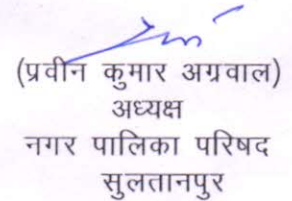 (प्रवीन कुमार अग्रवाल)
अध्यक्ष
नगर पालिका परिषद
सुलतानपुर